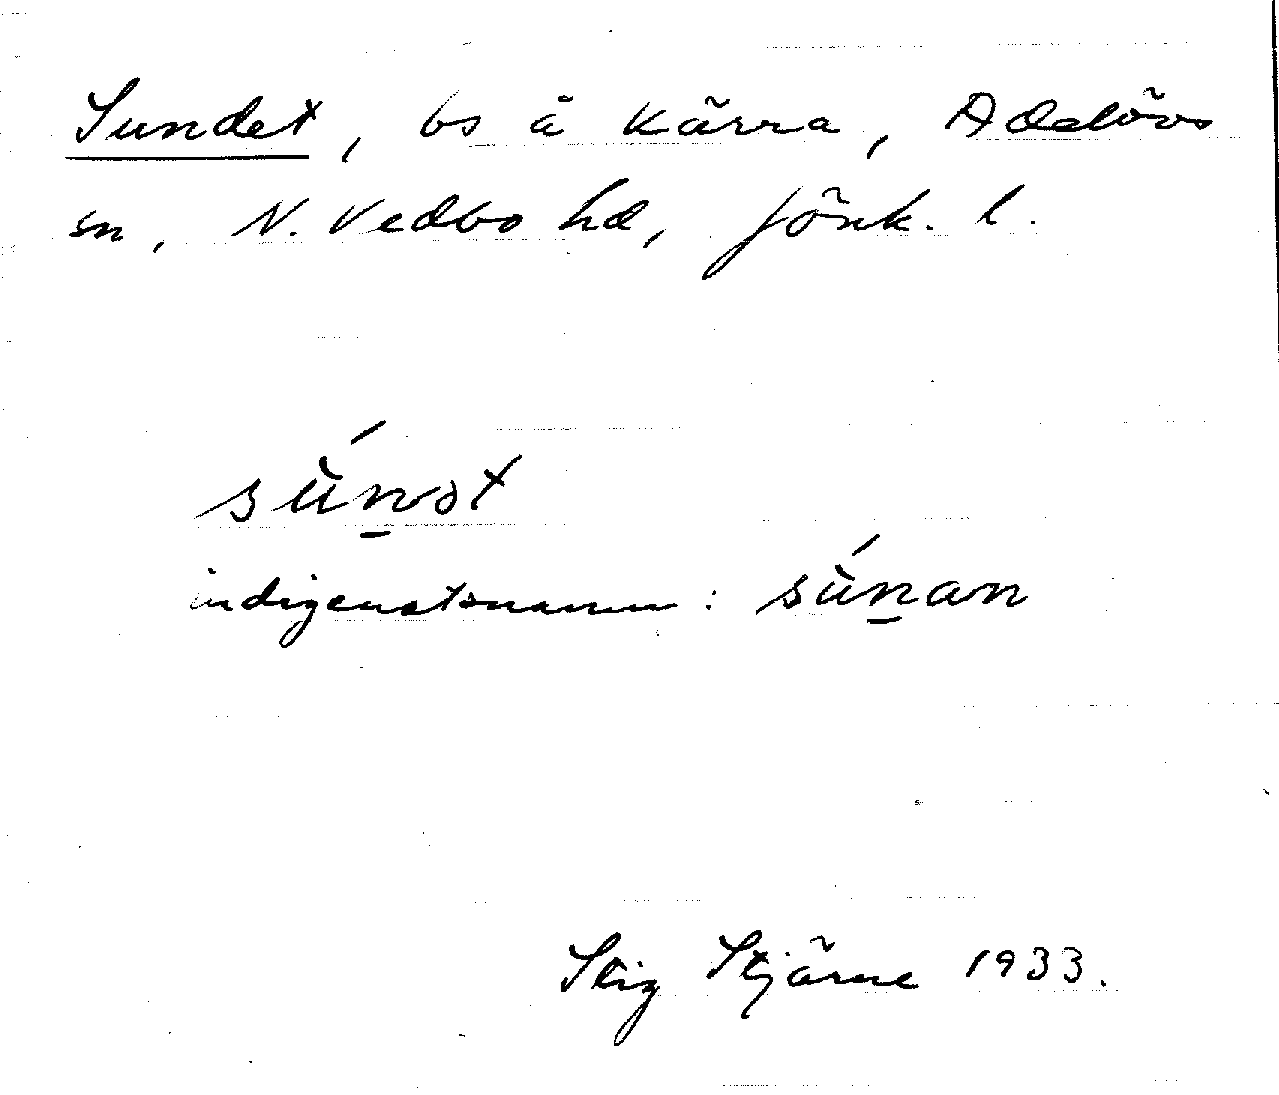 Sundet, bs å Kärra, Adelövs
sn, N. Vedbo hd, Jönk. l.
sù́n̠ət
indigenatsnamn: sù́n̠an
Stig Stjärne 1933.